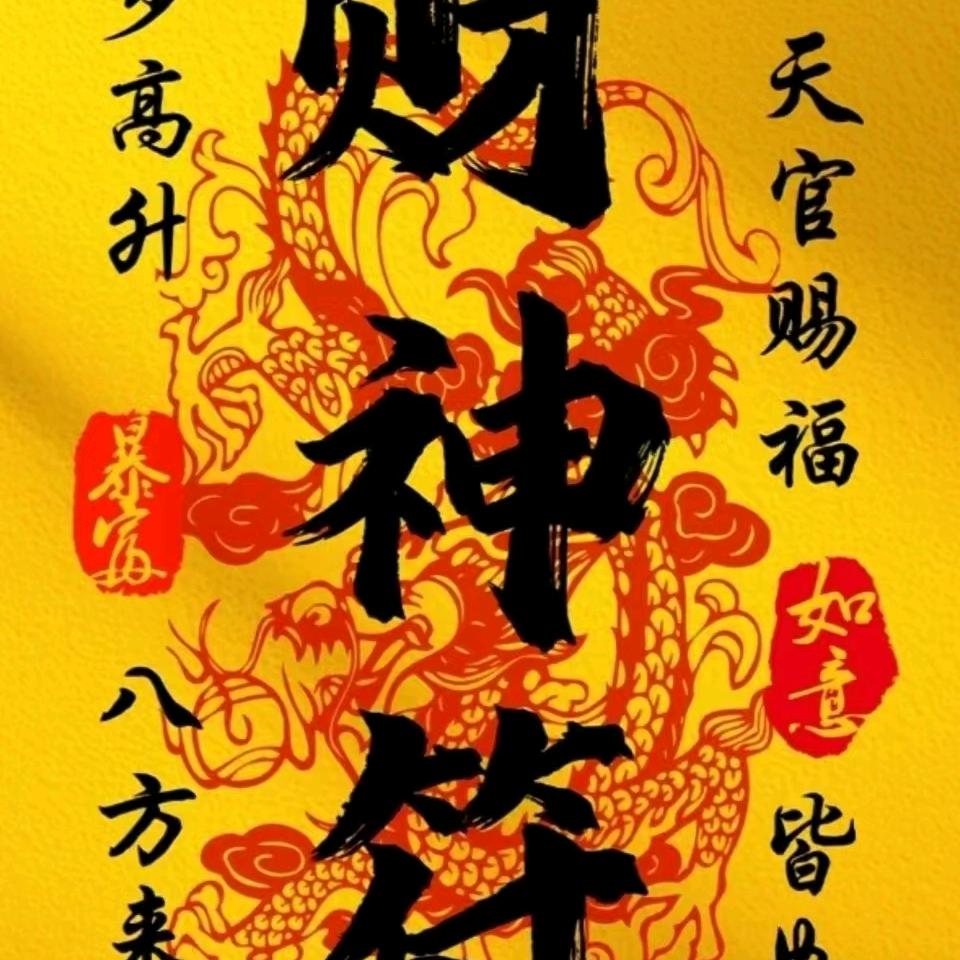 天官赐福
如意
皆
财神符
高升
暴富
八方来